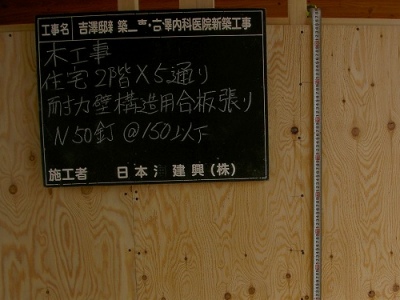 工事名 吉澤邸 築工事・吉澤内科医院新築工事
木工事
住宅 2階 X5通り
耐力壁構造用合板張り
N50釘 @150以下
施工者 日本 建興(株)